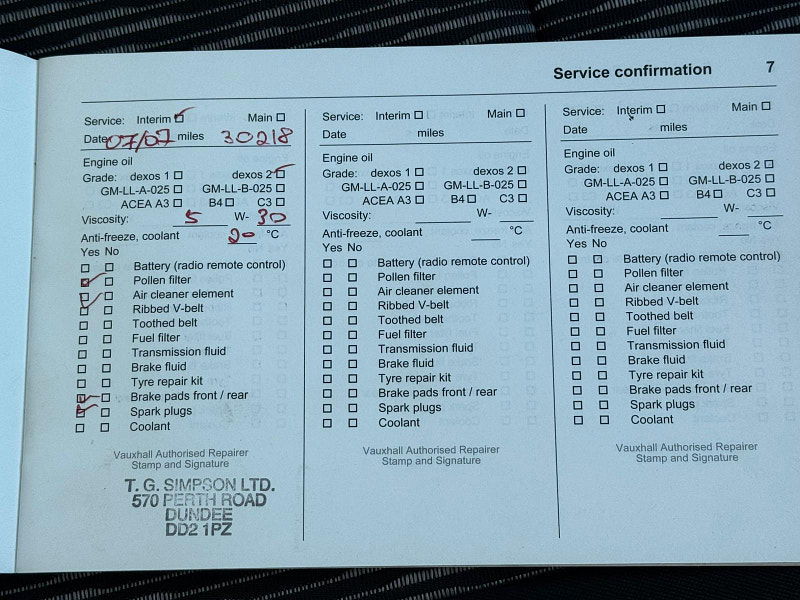 Service confirmation 7
Service: Interim Main
Date 07/07 miles 30218
Engine oil
Grade: dexos 1 dexos 2
GM-LL-A-025 GM-LL-B-025
ACEA A3 B4 C3
Viscosity: 5 W- 30
Anti-freeze, coolant 20 °C
Yes No
Battery (radio remote control)
Pollen filter
Air cleaner element
Ribbed V-belt
Toothed belt
Fuel filter
Transmission fluid
Brake fluid
Tyre repair kit
Brake pads front / rear
Spark plugs
Coolant
Vauxhall Authorised Repairer
Stamp and Signature
T. G. SIMPSON LTD.
570 PERTH ROAD
DUNDEE
DD2 1PZ
Service: Interim Main
Date miles
Engine oil
Grade: dexos 1 dexos 2
GM-LL-A-025 GM-LL-B-025
ACEA A3 B4 C3
Viscosity: W-
Anti-freeze, coolant °C
Yes No
Battery (radio remote control)
Pollen filter
Air cleaner element
Ribbed V-belt
Toothed belt
Fuel filter
Transmission fluid
Brake fluid
Tyre repair kit
Brake pads front / rear
Spark plugs
Coolant
Vauxhall Authorised Repairer
Stamp and Signature
Service: Interim Main
Date miles
Engine oil
Grade: dexos 1 dexos 2
GM-LL-A-025 GM-LL-B-025
ACEA A3 B4 C3
Viscosity: W-
Anti-freeze, coolant °C
Yes No
Battery (radio remote control)
Pollen filter
Air cleaner element
Ribbed V-belt
Toothed belt
Fuel filter
Transmission fluid
Brake fluid
Tyre repair kit
Brake pads front / rear
Spark plugs
Coolant
Vauxhall Authorised Repairer
Stamp and Signature